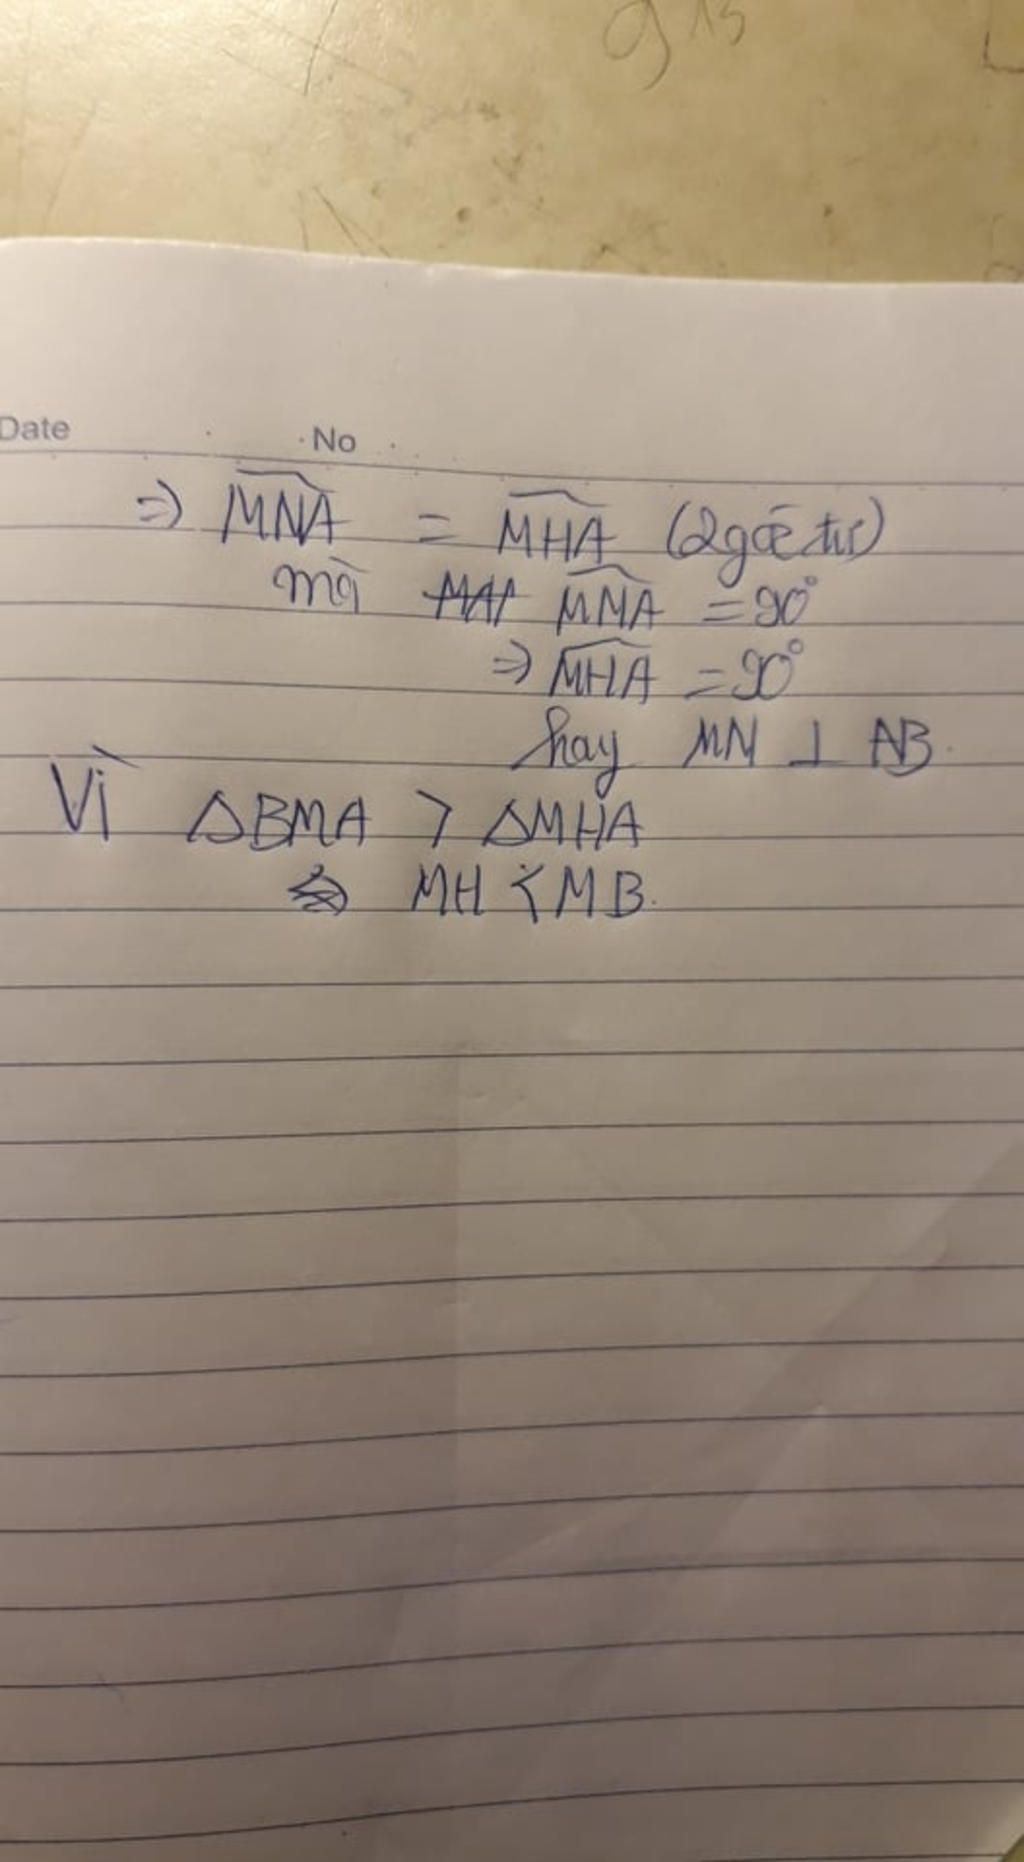 g 13
Date No
⇒ MNA = MHA (2 góc tư)
mà MAI MMA = 90°
⇒ MHA = 90°
hay MN ⊥ AB.
Vì ΔBMA > ΔMHA
MH < MB.